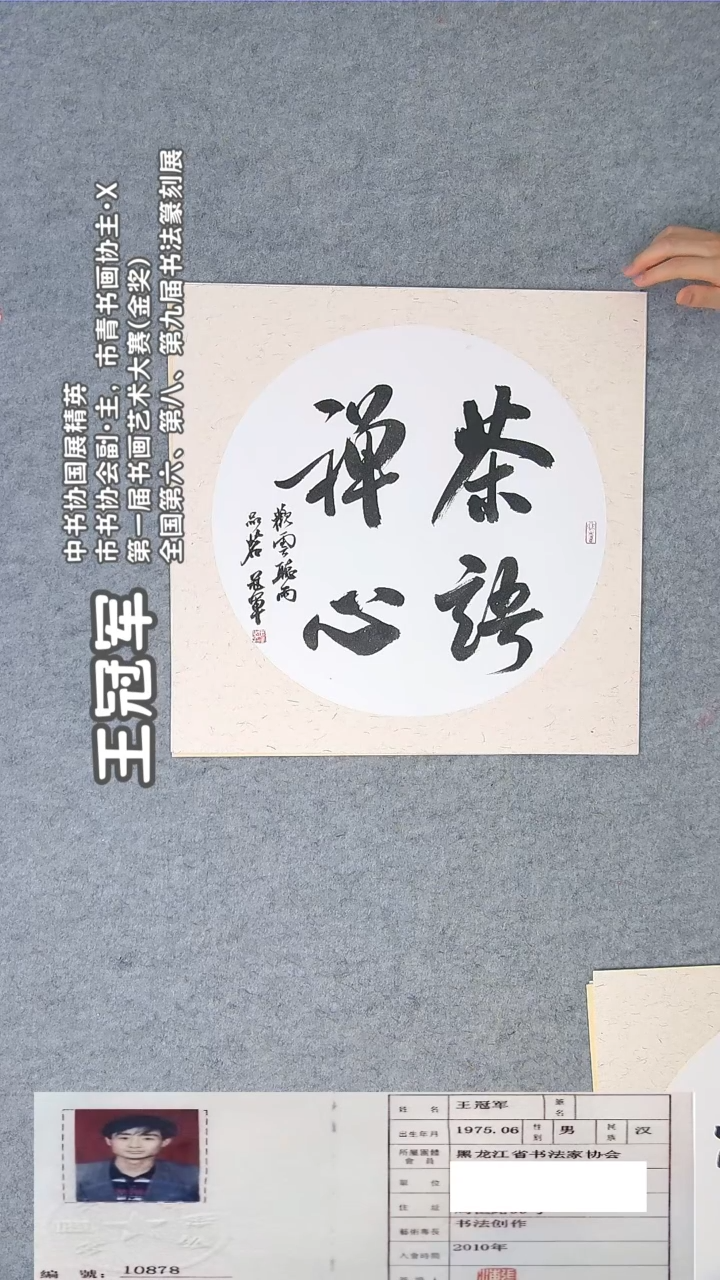 王冠军
中书协国展精英
市书协会副·主，市青书画协主·X
第一届书画艺术大赛(金奖)
全国第六、第八、第九届书法篆刻展
茶語
禅心
歌雲聽雨
品茗 冠軍
姓名 王冠军 筆名
出生年月 1975.06 性别 男 民族 汉
所屬團體會員 黑龙江省书法家协会
單位
住址
藝術專長 书法创作
入會時間 2010年
編號: 10878